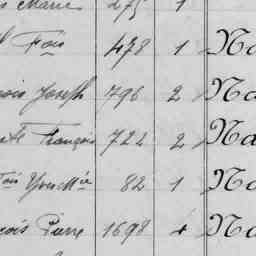 Marie 275 1
Fois 478 1 Na
Joseph 796 2 Na
François 722 2 Na
Fois Yves Mie 82 1 Na
Pierre 1698 4 Na